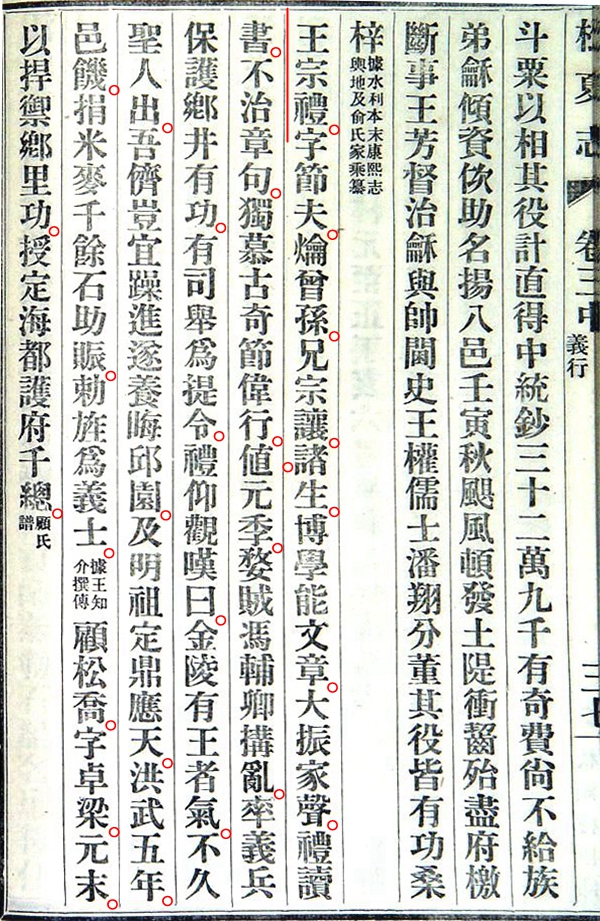 夏志 卷三中 義行
斗粟以相其役計直得中統鈔三十二萬九千有奇費尙不給族
弟龢傾資佽助名揚八邑壬寅秋颶風頓發土隄衝齧殆盡府檄
斷事王芳督治龢與帥閫史王權儒士潘翔分董其役皆有功桑
梓據水利本末康熙志輿地及俞氏家乘纂
王宗禮字節夫爚曾孫兄宗讓諸生博學能文章大振家聲禮讀
書不治章句獨慕古奇節偉行値元季婺賊馮輔卿搆亂率義兵
保護鄕井有功有司舉爲提令禮仰觀嘆曰金陵有王者氣不久
聖人出吾儕豈宜躁進遂養晦邱園及明祖定鼎應天洪武五年
邑饑捐米麥千餘石助賑勅旌爲義士據王知介撰傳顧松喬字卓梁元末
以捍禦鄕里功授定海都護府千總顧氏譜